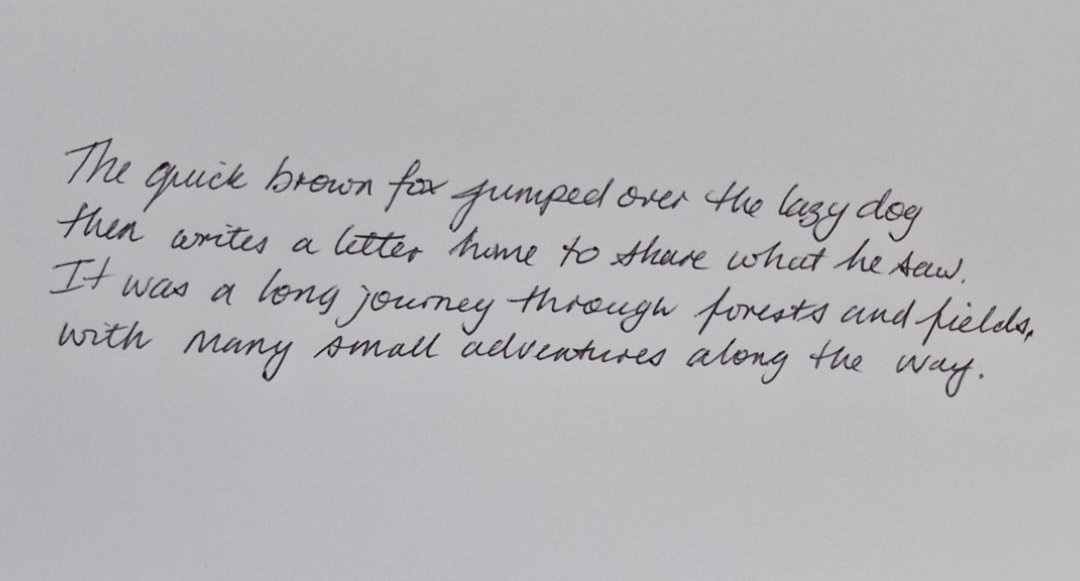 The quick brown fox jumped over the lazy dog
then writes a letter home to share what he saw.
It was a long journey through forests and fields,
with many small adventures along the way.